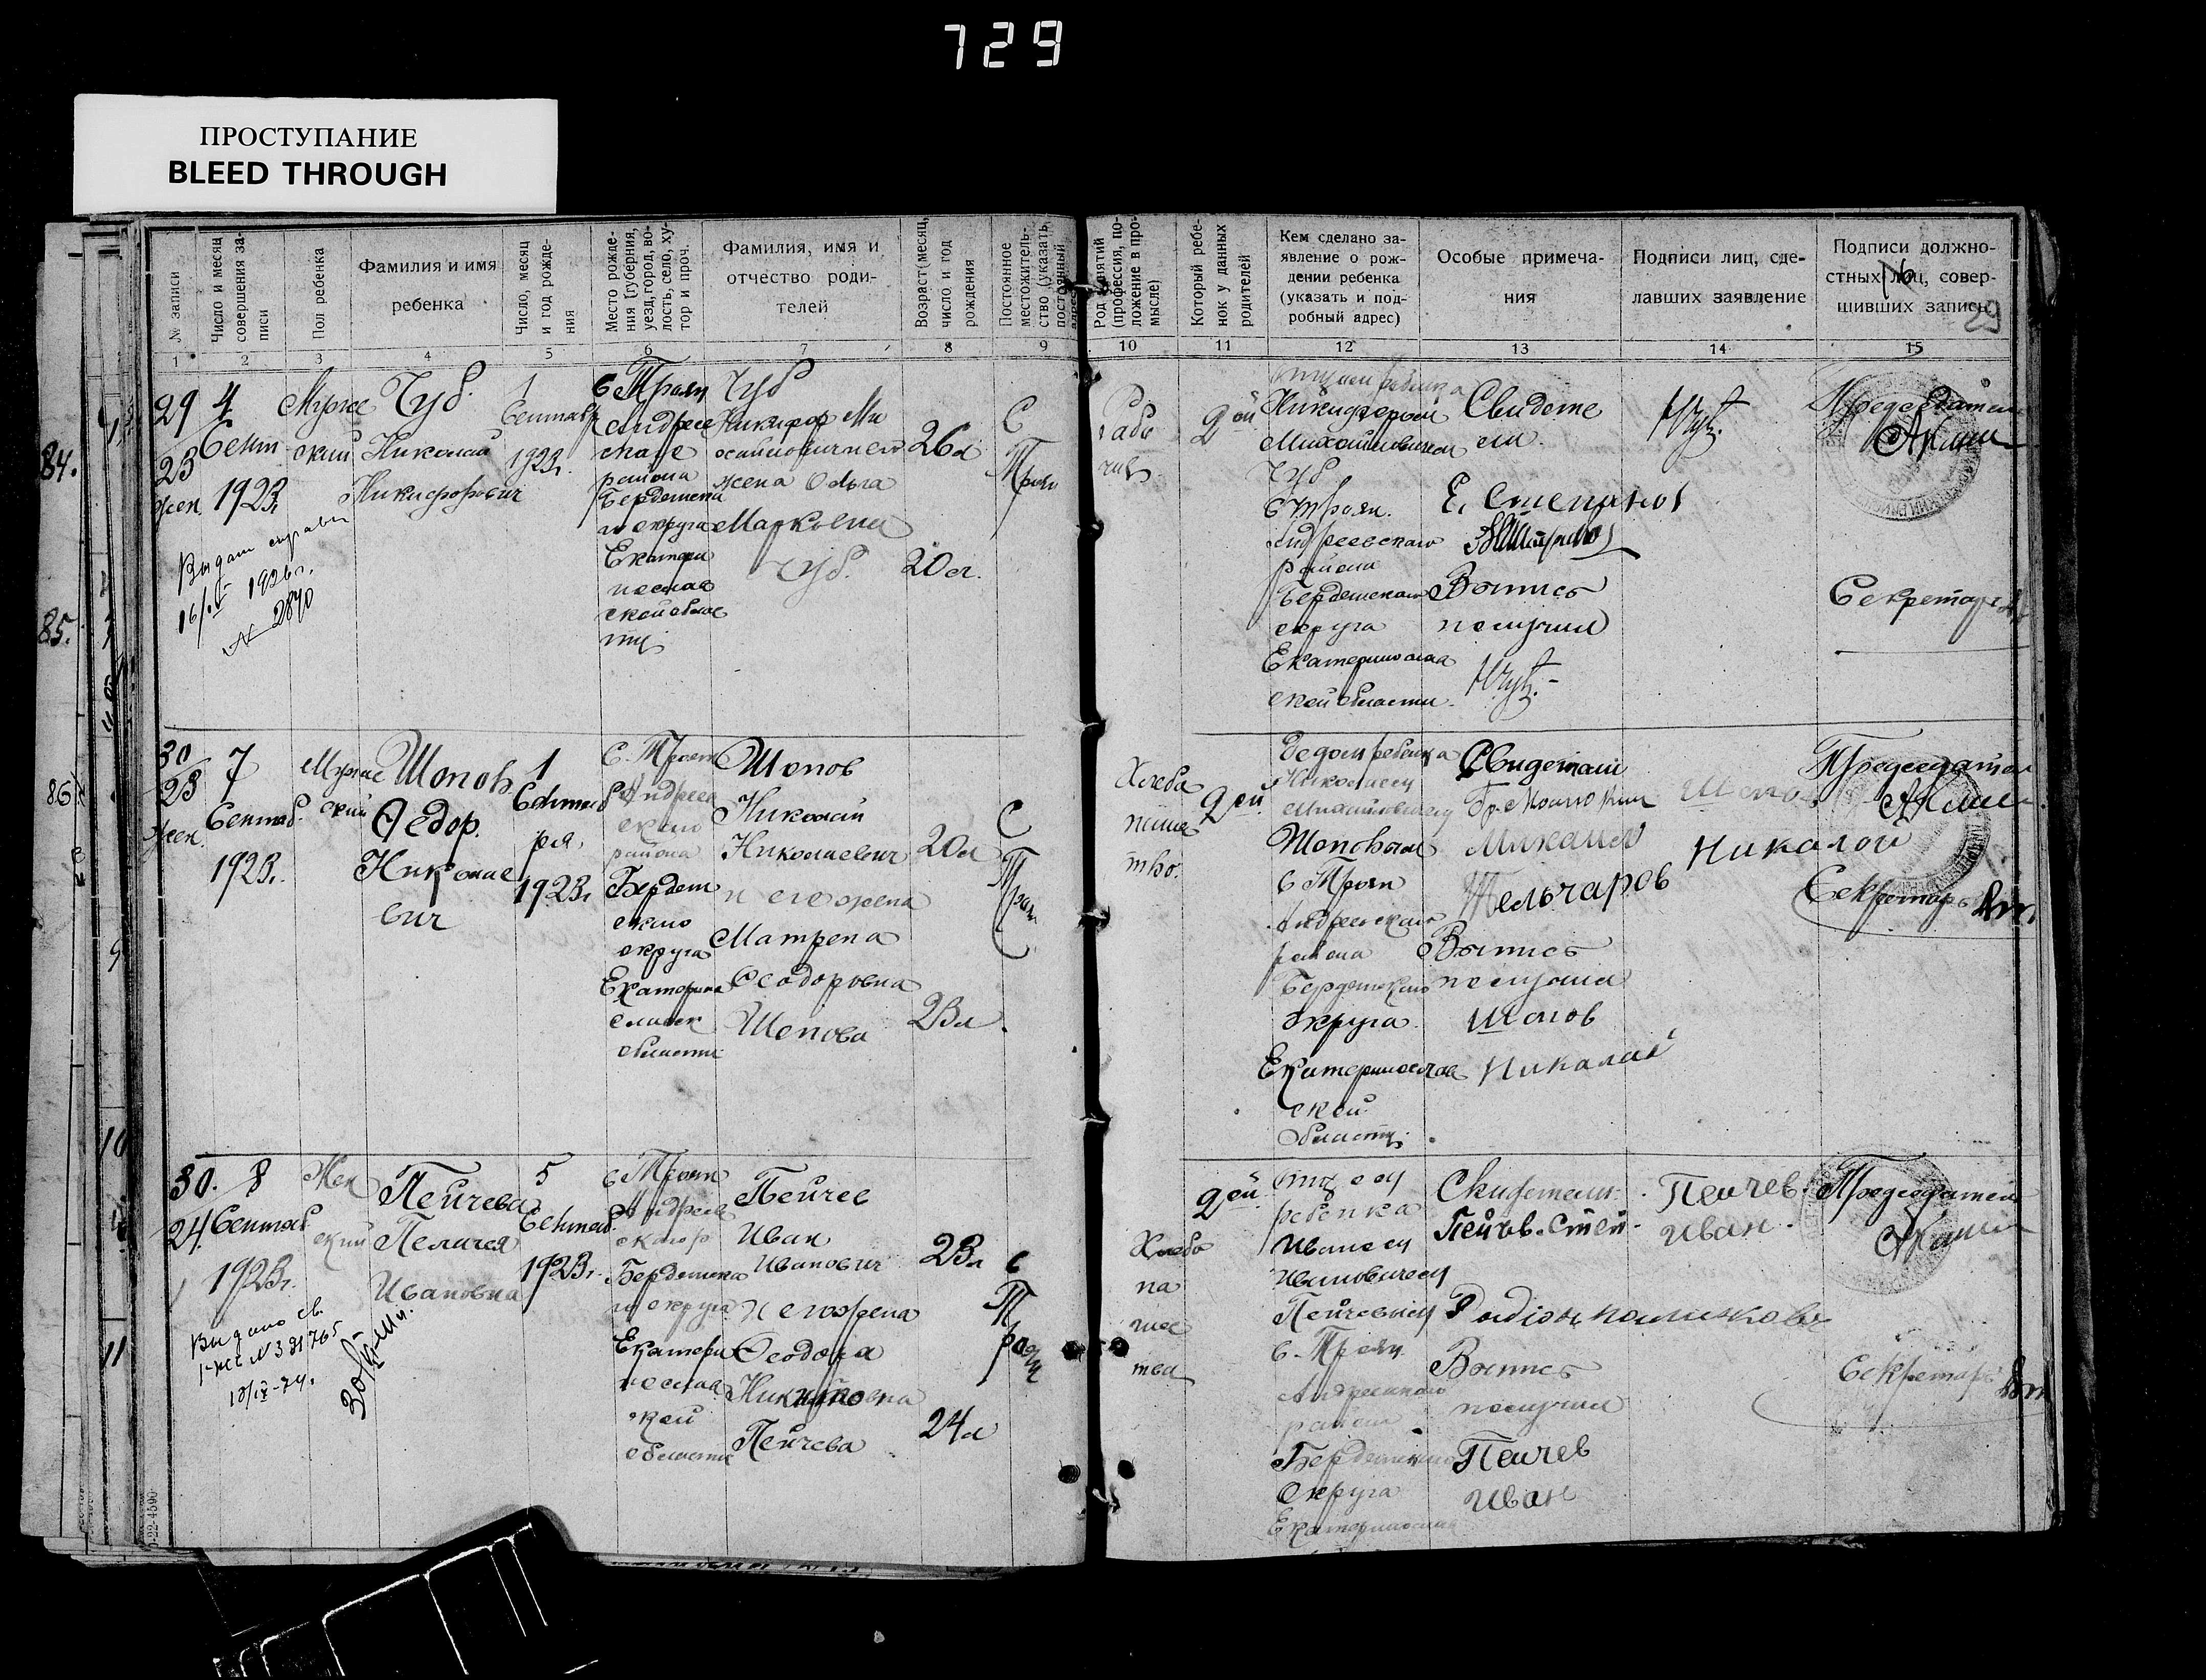 729
ПРОСТУПАНИЕ
BLEED THROUGH
№ записи
Число и месяц
совершения за-
писи
Пол ребенка
Фамилия и имя
ребенка
Число, месяц
и год рожде-
ния
Место рожде-
ния [губерния,
уезд, город, во-
лость, село, ху-
тор и проч.
Фамилия, имя и
отчество роди-
телей
Возраст (месяц,
число и год
рождения
Постоянное
местожитель-
ство (указать
постоянный
Род занятий
(профессия, по-
ложение в про-
мысле)
Который ребе-
нок у данных
родителей
Кем сделано за-
явление о рож-
дении ребенка
(указать и под-
робный адрес)
Особые примеча-
ния
Подписи лиц, сде-
лавших заявление
Подписи должно-
стных лиц, совер-
шивших запись
29
1 2 3 4 5 6 7 8 9 10 11 12 13 14 15
84.
85.
86
29
23
жен.
4
Сент
1923г.
Мужс
кий
Чуб
Николай
Никифорович
1
Сентябр
1923г.
с Троян
Андреев
района
Бердянска
го округа
Екатери
нослав
ской облас
ти
Чуб
Никифор Ми
хайлович и его
жена Ольга
Марковна
Чуб.
26 л
20 л.
С
Троян
2 ой
Отцом ребенка
Никифором
Михайловичем
Чуб
с Троян.
Андреевского
района
Бердянского
округа
Екатеринослав
ской области.
Свидете
ли.
Е. Степанов
Выпись
получил
Председатель
Секретарь
16/V 1926г.
N 2840
30
23
жен.
7
Сентяб.
1923г.
Мужс
кий
Шопов
Федор.
Николае
вич
1
Сентяб
ря
1923г
с. Троян
Андреев
ского
района
Бердян
ского
округа
Екатерино
славск
области
Шопов
Николай
Николаевич
и его жена
Матрена
Феодоровна
Шопова
20 л
23 л.
С
Троян
Хлебо
паше
тво.
2 ой
Дедом ребенка
Николаем
Михайловичем
Шоповым
с Троян
Андреевского
района
Бердянского
округа
Екатеринослав
ской
области.
Свидетели
Михаил
Тельчаров
Выпись
получил
Шопов
Николай
Шопов
Николай
Председатель
Секретарь
30.
24
8
Сентяб
1923г.
Жен
ский
Пейчева
Пелагея
Ивановна
5
Сентяб.
1923г.
с Троян
Андреев
Бердянска
го округа
Екатери
нослав
ской
области
Пейчев
Иван
Иванович
и его жена
Феодора
Никитовна
Пейчева
23 л
24 л
с
Т
роян
Хлебо
па
шес
тва
2 ой
Отцом
ребенка
Иваном
Ивановичем
Пейчевым
с. Троян
Андреевского
района
Бердянского
округа
Екатеринослав
Пейчев. Степ.
Выпись
получил
Пейчев
Иван
Пейчев
Иван.
Председатель
Секретарь
Выдано св.